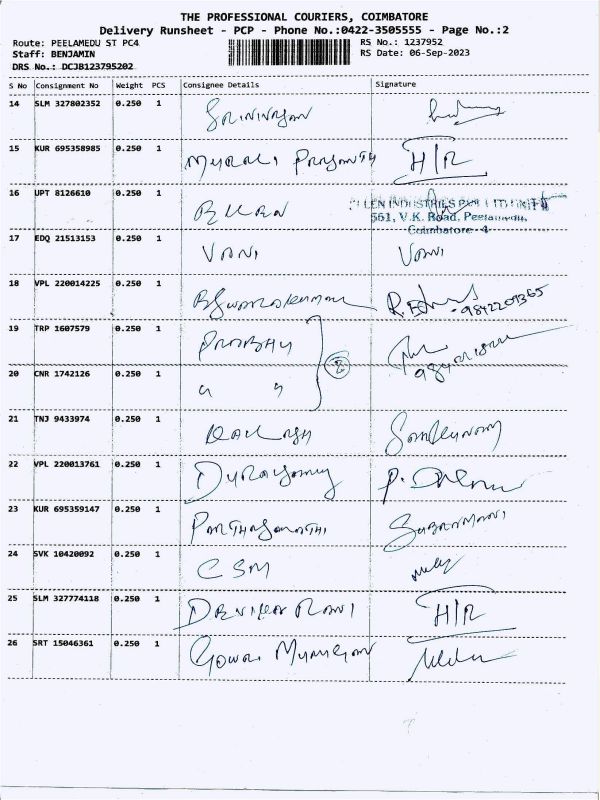 THE PROFESSIONAL COURIERS, COIMBATORE
Delivery Runsheet - PCP - Phone No.:0422-3505555 - Page No.:2
Route: PEELAMEDU ST PC4 RS No.: 1237952
Staff: BENJAMIN RS Date: 06-Sep-2023
DRS No.: DCJB123795202
S No Consignment No Weight PCS Consignee Details Signature
14 SLM 327802352 0.250 1
15 KUR 695358985 0.250 1 MURALI PRASANTH H/R
16 UPT 8126610 0.250 1
INDUSTRIES
561, V.K. Road, Peelamedu,
Coimbatore - 4
17 EDQ 21513153 0.250 1 VANI VANI
18 VPL 220014225 0.250 1
19 TRP 1607579 0.250 1 PRABHU
20 CNR 1742126 0.250 1 " " 2
21 TNJ 9433974 0.250 1 KAILASH
22 VPL 220013761 0.250 1 DURAISAMY
23 KUR 695359147 0.250 1 PARTHASARATHI SUBRAMANI
24 SVK 10420092 0.250 1 CSM
25 SLM 327774118 0.250 1 RANI H/R
26 SRT 15046361 0.250 1 GOWRI MURUGAN